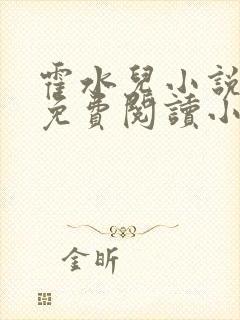 霍水兒小說
免費閱讀小
金昕